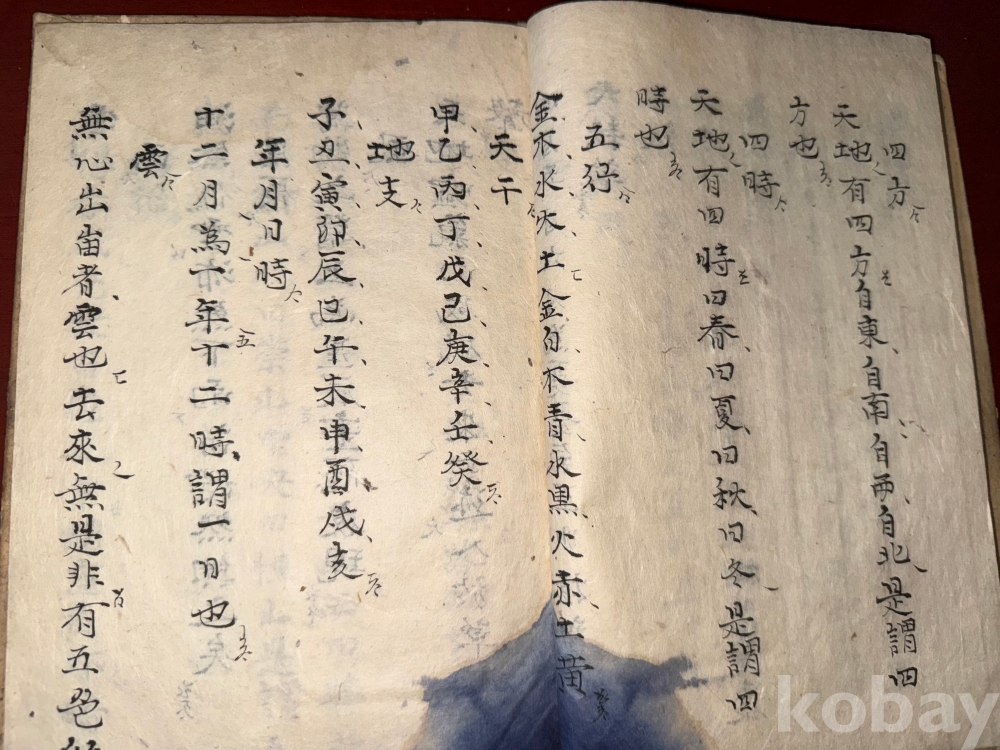 四方
天地有四方自東自南自西自北是謂四
方也
四時
天地有四時曰春曰夏曰秋曰冬是謂四
時也
五行
金木水火土金白木青水黒火赤土黄
天干
甲乙丙丁戊己庚辛壬癸
地支
子丑寅卯辰巳午未申酉戌亥
年月日時
十二月為一年十二時謂一日也
雲
無心出峀者雲也去來無是非有五色
kobay